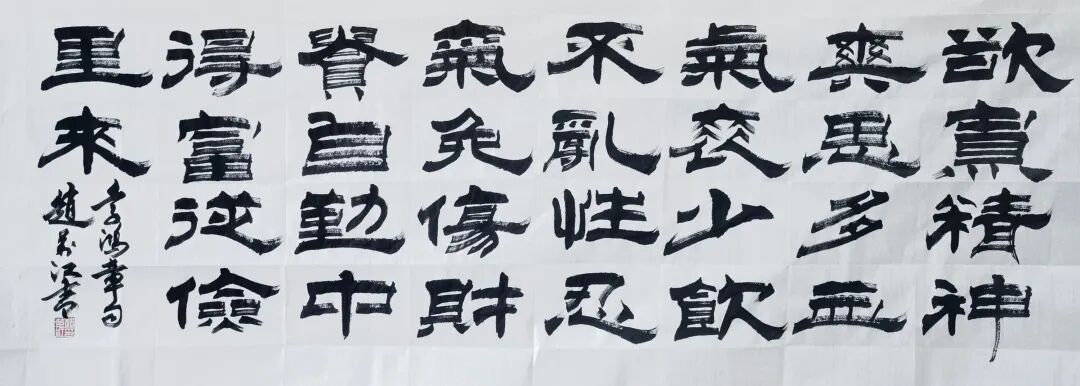 欲寡精神
爽思多血
氣衰少飲
不亂性忍
氣免傷財
貴自勤中
得富從儉
里來
李鴻章句
趙江書